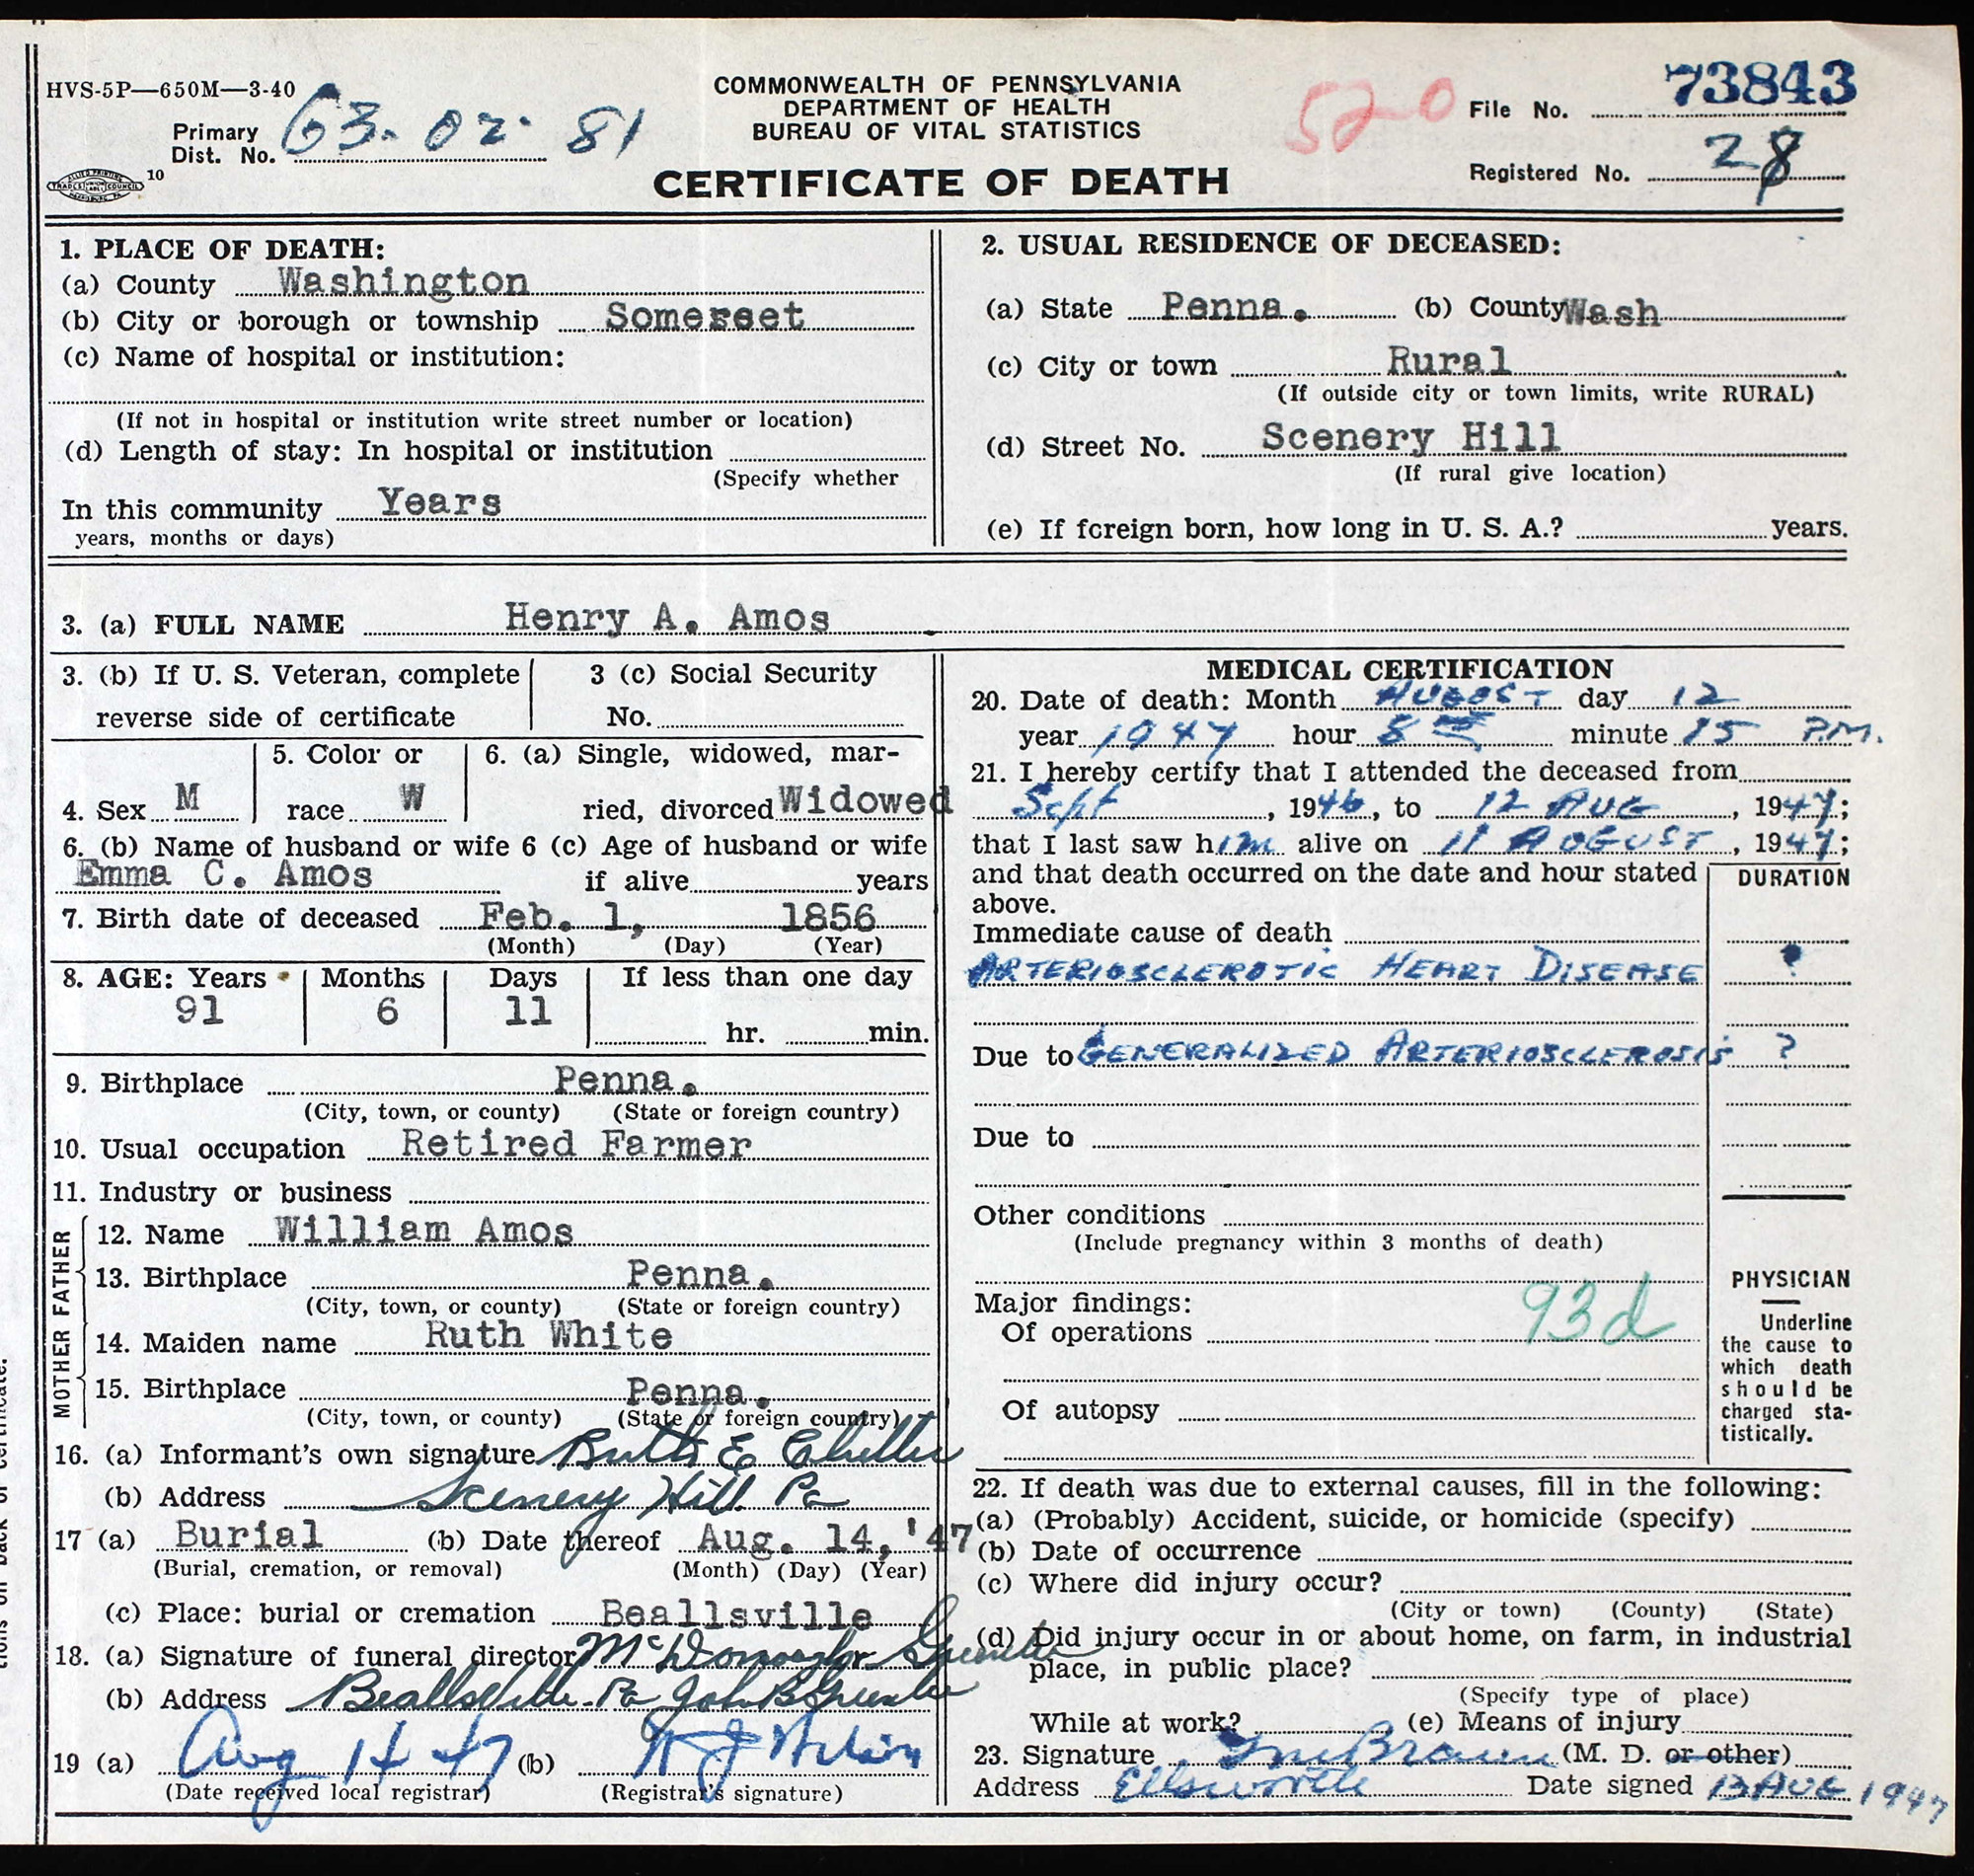 HVS-5P—650M—3-40
COMMONWEALTH OF PENNSYLVANIA
DEPARTMENT OF HEALTH
BUREAU OF VITAL STATISTICS
CERTIFICATE OF DEATH
Primary Dist. No. 63-02-81
10
520
File No. 73843
Registered No. 28
1. PLACE OF DEATH:
(a) County Washington
(b) City or borough or township Somerset
(c) Name of hospital or institution:
(If not in hospital or institution write street number or location)
(d) Length of stay: In hospital or institution
(Specify whether
In this community Years
years, months or days)
2. USUAL RESIDENCE OF DECEASED:
(a) State Penna. (b) County Wash
(c) City or town Rural
(If outside city or town limits, write RURAL)
(d) Street No. Scenery Hill
(If rural give location)
(e) If foreign born, how long in U. S. A.? years.
3. (a) FULL NAME Henry A. Amos
3. (b) If U. S. Veteran, complete
reverse side of certificate
3 (c) Social Security
No.
4. Sex M
5. Color or
race W
6. (a) Single, widowed, mar-
ried, divorced Widowed
6. (b) Name of husband or wife 6 (c) Age of husband or wife
Emma C. Amos if alive years
7. Birth date of deceased Feb. 1, 1856
(Month) (Day) (Year)
8. AGE: Years Months Days If less than one day
91 6 11 hr. min.
9. Birthplace Penna.
(City, town, or county) (State or foreign country)
10. Usual occupation Retired Farmer
11. Industry or business
FATHER
12. Name William Amos
13. Birthplace Penna.
(City, town, or county) (State or foreign country)
MOTHER
14. Maiden name Ruth White
15. Birthplace Penna.
(City, town, or county) (State or foreign country)
16. (a) Informant's own signature Ruth E
(b) Address Scenery Hill Pa
17 (a) Burial (b) Date thereof Aug. 14, '47
(Burial, cremation, or removal) (Month) (Day) (Year)
(c) Place: burial or cremation Beallsville
18. (a) Signature of funeral director
(b) Address Beallsville Pa John B Greenlee
19 (a) Aug 14 47 (b)
(Date received local registrar) (Registrar's signature)
MEDICAL CERTIFICATION
20. Date of death: Month AUGUST day 12
year 1947 hour 8 minute 15 P.M.
21. I hereby certify that I attended the deceased from
Sept, 1946, to 12 AUG, 1947;
that I last saw him alive on 11 AUGUST, 1947;
and that death occurred on the date and hour stated
above.
DURATION
Immediate cause of death
ARTERIOSCLEROTIC HEART DISEASE ?
Due to GENERALIZED ARTERIOSCLEROSIS ?
Due to
Other conditions
(Include pregnancy within 3 months of death)
Major findings:
Of operations
93d
Of autopsy
PHYSICIAN
Underline
the cause to
which death
should be
charged sta-
tistically.
22. If death was due to external causes, fill in the following:
(a) (Probably) Accident, suicide, or homicide (specify)
(b) Date of occurrence
(c) Where did injury occur?
(City or town) (County) (State)
(d) Did injury occur in or about home, on farm, in industrial
place, in public place?
(Specify type of place)
While at work? (e) Means of injury
23. Signature (M. D. or other)
Address Ellsworth Date signed 13 AUG 1947